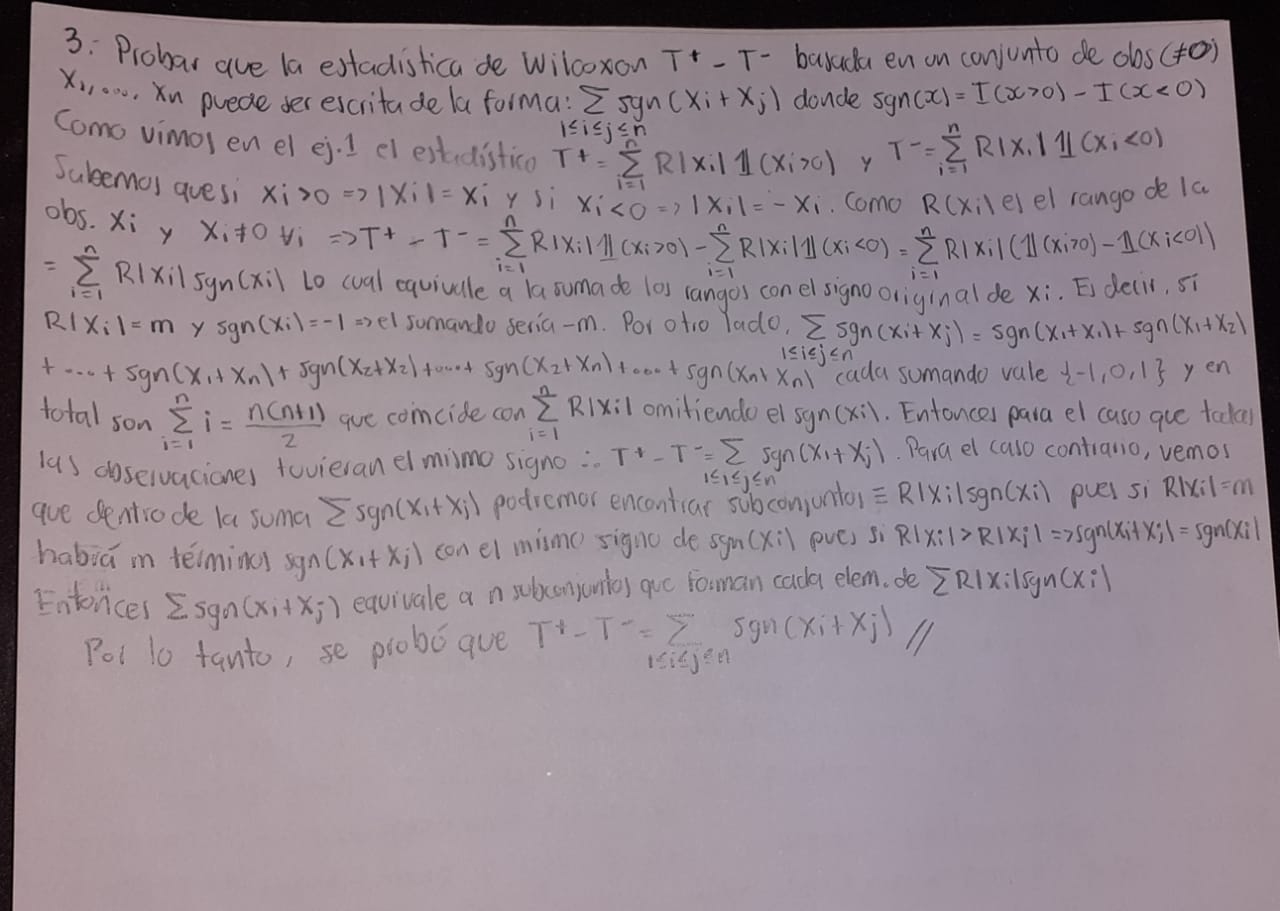 3.- Probar que la estadística de Wilcoxon T⁺ - T⁻ basada en un conjunto de obs (≠0)
X₁,...., Xn puede ser escrita de la forma: ∑ sgn(Xi + Xj) donde sgn(x) = I(x>0) - I(x<0)
1≤i≤j≤n
Como vimos en el ej.1 el estadístico T⁺ = ∑ⁿᵢ₌₁ R|Xi| 𝟙(Xi>0) y T⁻ = ∑ⁿᵢ₌₁ R|Xi| 𝟙(Xi<0)
Sabemos que si Xi>0 => |Xi| = Xi y si Xi<0 => |Xi| = -Xi. Como R(Xi) es el rango de la
obs. Xi y Xi≠0 ∀i => T⁺ - T⁻ = ∑ⁿᵢ₌₁ R|Xi| 𝟙(Xi>0) - ∑ⁿᵢ₌₁ R|Xi| 𝟙(Xi<0) = ∑ⁿᵢ₌₁ R|Xi| (𝟙(Xi>0) - 𝟙(Xi<0))
= ∑ⁿᵢ₌₁ R|Xi| sgn(Xi) Lo cual equivale a la suma de los rangos con el signo original de Xi. Es decir, si
R|Xi| = m y sgn(Xi) = -1 => el sumando sería -m. Por otro lado, ∑ sgn(Xi+Xj) = sgn(X₁+X₁) + sgn(X₁+X₂)
1≤i≤j≤n
+ .... + sgn(X₁+Xn) + sgn(X₂+X₂) + .... + sgn(X₂+Xn) + .... + sgn(Xn+Xn) cada sumando vale {-1,0,1} y en
total son ∑ⁿᵢ₌₁ i = n(n+1)/2 que coincide con ∑ⁿᵢ₌₁ R|Xi| omitiendo el sgn(Xi). Entonces para el caso que todas
las observaciones tuvieran el mismo signo ∴ T⁺ - T⁻ = ∑ sgn(Xi+Xj). Para el caso contrario, vemos
1≤i≤j≤n
que dentro de la suma ∑ sgn(Xi+Xj) podremos encontrar subconjuntos ≡ R|Xi|sgn(Xi) pues si R|Xi| = m
habrá m términos sgn(Xi+Xj) con el mismo signo de sgn(Xi) pues si R|Xi| > R|Xj| => sgn(Xi+Xj) = sgn(Xi)
Entonces ∑ sgn(Xi+Xj) equivale a n subconjuntos que forman cada elem. de ∑ R|Xi|sgn(Xi)
Por lo tanto, se probó que T⁺ - T⁻ = ∑ sgn(Xi+Xj) //
1≤i≤j≤n